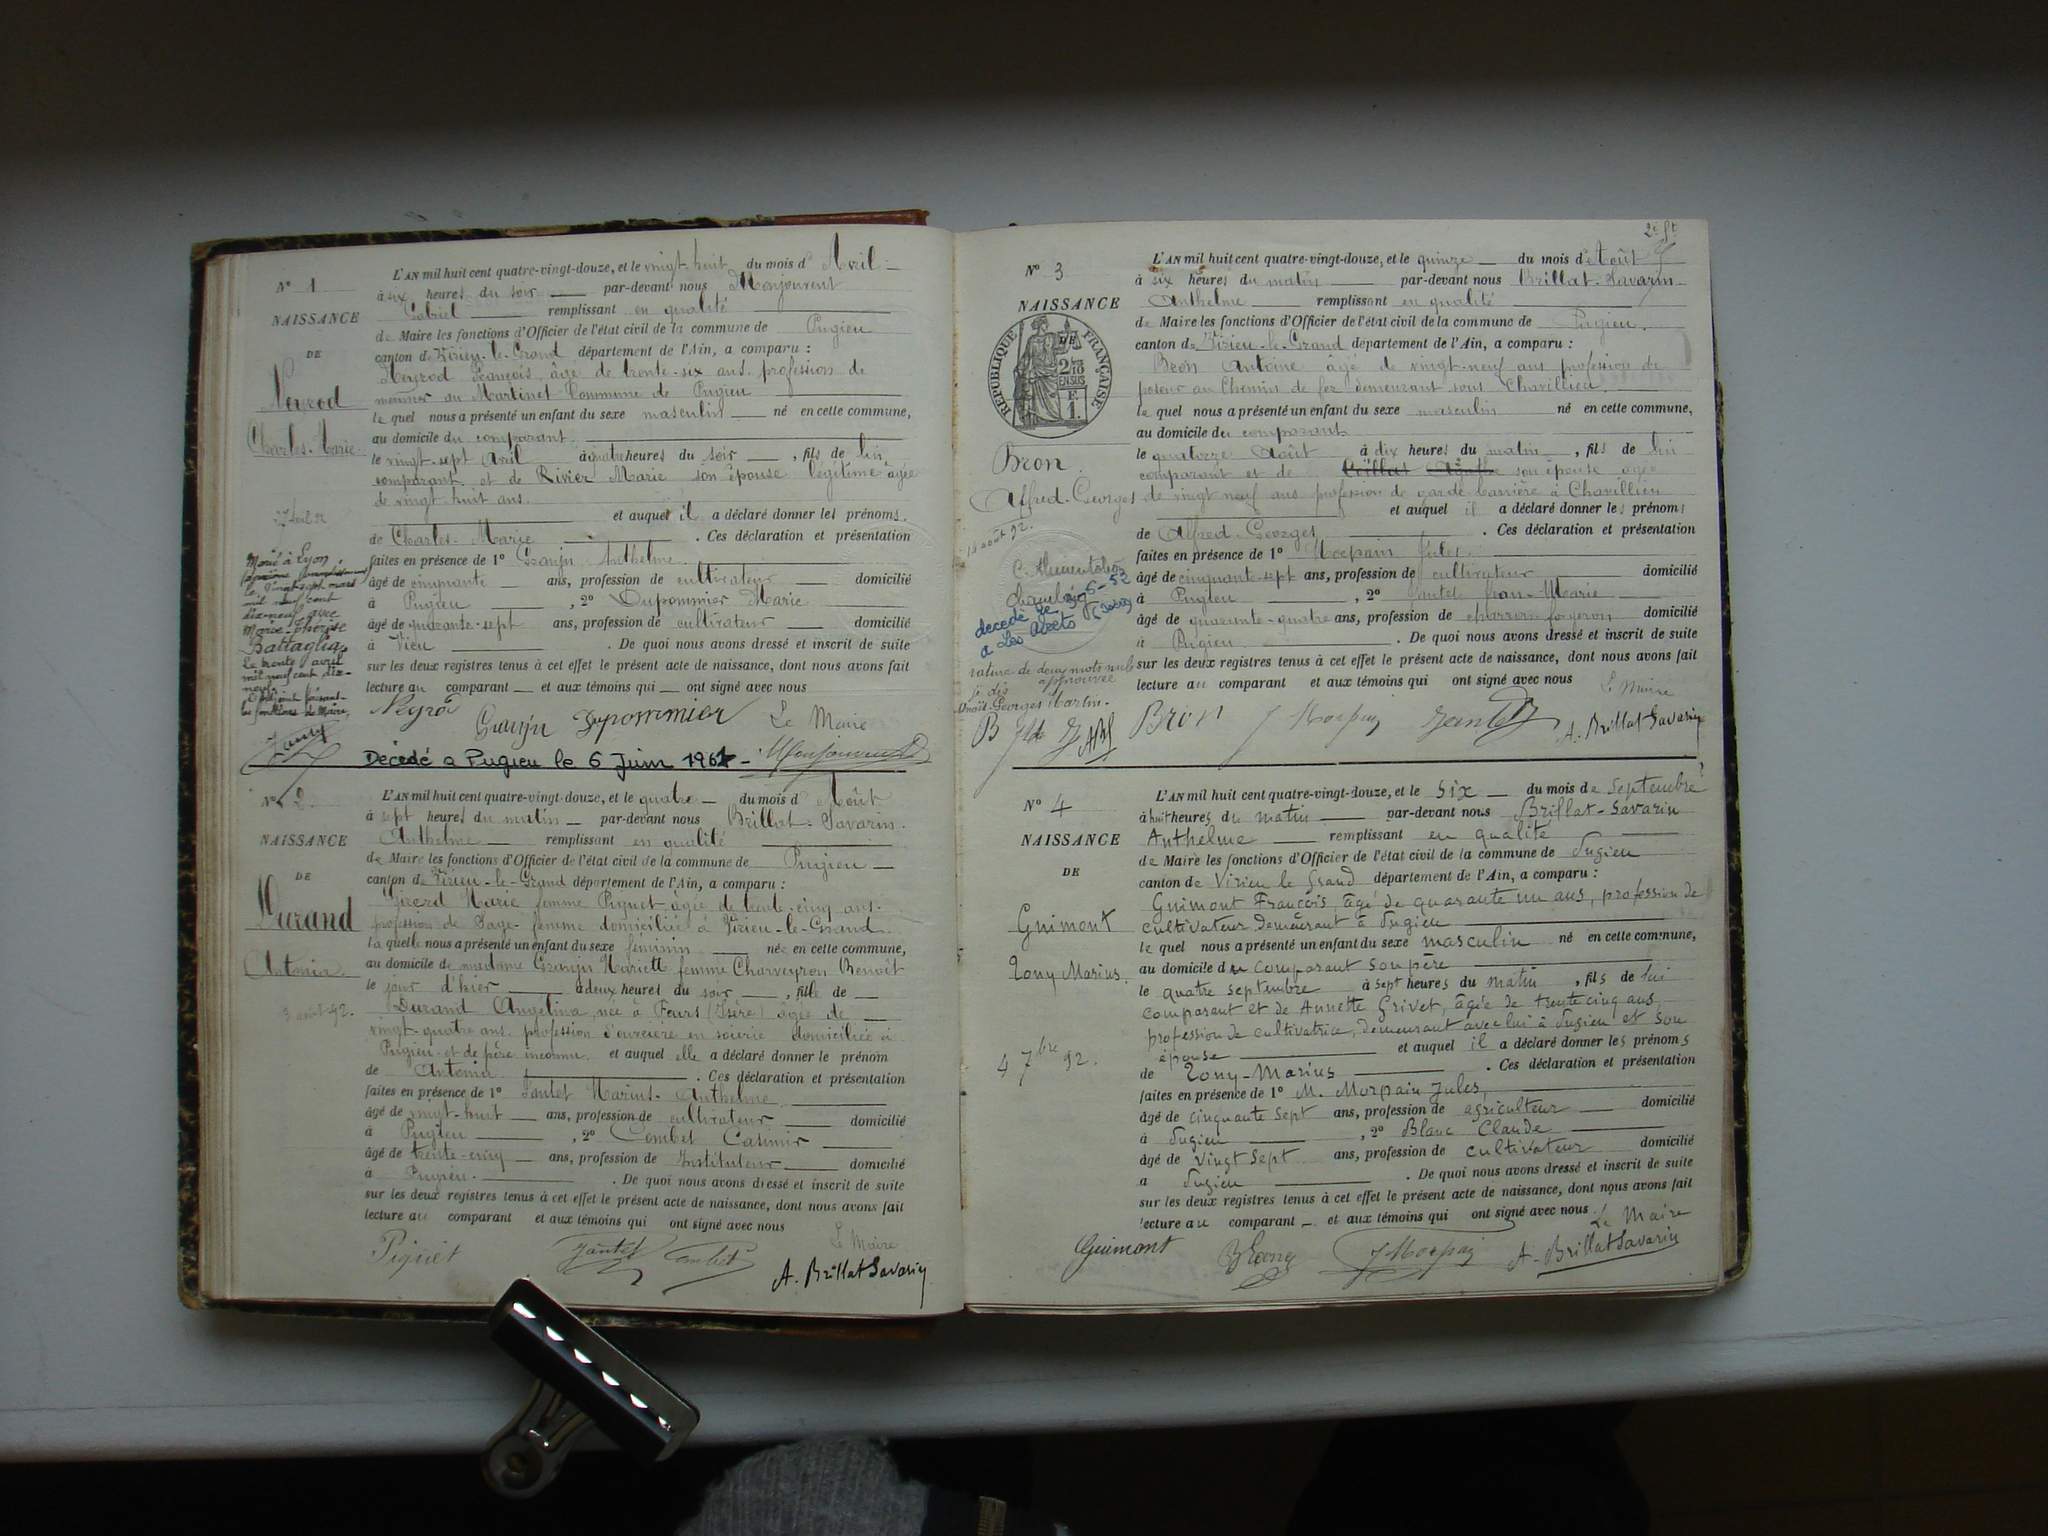 N° 1
NAISSANCE
DE
Neyrod
Charles-Marie
27 Avril 92
Marié à Lyon,
le vingt-sept mars
mil neuf cent
dix-neuf avec
Marie-Thérèse
Battaglia
Le trente avril
mil neuf cent dix-
neuf.
L'AN mil huit cent quatre-vingt-douze, et le vingt-huit du mois d'Avril
à six heures du soir par-devant nous Monjouvent
Gabriel remplissant en qualité
de Maire les fonctions d'Officier de l'état civil de la commune de Pugieu
canton de Virieu-le-Grand département de l'Ain, a comparu :
Neyrod François, âgé de trente-six ans, profession de
meunier au Martinet Commune de Pugieu
lequel nous a présenté un enfant du sexe masculin né en cette commune,
au domicile du comparant
le vingt-sept Avril à quatre heures du soir, fils de lui
comparant et de Rivier Marie son épouse légitime âgée
de vingt huit ans
et auquel il a déclaré donner les prénoms
de Charles-Marie. Ces déclaration et présentation
faites en présence de 1° Granjn Anthelme
âgé de cinquante ans, profession de cultivateur domicilié
à Pugieu, 2° Dupommier Marie
âgé de quarante-sept ans, profession de cultivateur domicilié
à Vieu. De quoi nous avons dressé et inscrit de suite
sur les deux registres tenus à cet effet le présent acte de naissance, dont nous avons fait
lecture au comparant et aux témoins qui ont signé avec nous
Neyrod Granjn Dupommier Le Maire
Décédé a Pugieu le 6 Juin 1961 - Monjouvent
N° 2
NAISSANCE
DE
Durand
Antonia
3 août 92.
L'AN mil huit cent quatre-vingt-douze, et le quatre du mois d'Août
à sept heures du matin par-devant nous Brillat-Savarin
Anthelme remplissant en qualité
de Maire les fonctions d'Officier de l'état civil de la commune de Pugieu
canton de Virieu-le-Grand département de l'Ain, a comparu :
Girerd Marie femme Piguet âgée de trente-cinq ans
profession de Sage-femme domiciliée à Virieu-le-Grand
laquelle nous a présenté un enfant du sexe féminin née en cette commune,
au domicile de madame Granjn Mariett femme Charveyron Benoît
le jour d'hier à deux heures du soir, fille de
Durand Angelina, née à Feurs (Isère) âgée de
vingt-quatre ans, profession d'ouvrière en soierie domiciliée à
Pugieu et de père inconnu et auquel elle a déclaré donner le prénom
de Antonia. Ces déclaration et présentation
faites en présence de 1° Jantet Marius-Anthelme
âgé de vingt-huit ans, profession de cultivateur domicilié
à Pugieu, 2° Combet Casimir
âgé de trente-cinq ans, profession de Instituteur domicilié
à Pugieu. De quoi nous avons dressé et inscrit de suite
sur les deux registres tenus à cet effet le présent acte de naissance, dont nous avons fait
lecture au comparant et aux témoins qui ont signé avec nous
Piguet Jantet Combet Le Maire
A. Brillat Savarin
2e ft
N° 3
NAISSANCE
RÉPUBLIQUE FRANÇAISE
DE
2/10
EN SUS
F
1.
Bron
Alfred-Georges
14 août 92.
decedé le 5-6-52
rature de deux mots nuls
approuvée
L'AN mil huit cent quatre-vingt-douze, et le quinze du mois d'Août
à six heures du matin par-devant nous Brillat-Savarin
Anthelme remplissant en qualité
de Maire les fonctions d'Officier de l'état civil de la commune de Pugieu
canton de Virieu-le-Grand département de l'Ain, a comparu :
Bron Antoine âgé de vingt-neuf ans profession de
poseur au Chemin de fer demeurant sous Chavillieu
lequel nous a présenté un enfant du sexe masculin né en cette commune,
au domicile du comparant
le quatorze Août à dix heures du matin, fils de lui
comparant et de son épouse âgée
de vingt neuf ans profession de garde barrière à Chavillieu
et auquel il a déclaré donner les prénoms
de Alfred-Georges. Ces déclaration et présentation
faites en présence de 1° Morpain Jules
âgé de cinquante-sept ans, profession de cultivateur domicilié
à Pugieu, 2° Jantet Jean-Marie
âgé de quarante-quatre ans, profession de charron forgeron domicilié
à Pugieu. De quoi nous avons dressé et inscrit de suite
sur les deux registres tenus à cet effet le présent acte de naissance, dont nous avons fait
lecture au comparant et aux témoins qui ont signé avec nous
Le Maire
Bron J Morpain Jantet A. Brillat-Savarin
N° 4
NAISSANCE
DE
Guimont
Tony Marius.
4 7bre 92.
L'AN mil huit cent quatre-vingt-douze, et le six du mois de Septembre
à huit heures du matin par-devant nous Brillat-Savarin
Anthelme remplissant en qualité
de Maire les fonctions d'Officier de l'état civil de la commune de Pugieu
canton de Virieu le Grand département de l'Ain, a comparu :
Guimont François, âgé de quarante un ans, profession de
cultivateur demeurant à Pugieu
lequel nous a présenté un enfant du sexe masculin né en cette commune,
au domicile du comparant son père
le quatre septembre à sept heures du matin, fils de lui
comparant et de Annette Grivet, âgée de trente cinq ans
profession de cultivatrice, demeurant avec lui à Pugieu et son
épouse et auquel il a déclaré donner les prénoms
de Tony-Marius. Ces déclaration et présentation
faites en présence de 1° M. Morpain Jules,
âgé de cinquante sept ans, profession de agriculteur domicilié
à Pugieu, 2° Blanc Claude
âgé de vingt sept ans, profession de cultivateur domicilié
à Pugieu. De quoi nous avons dressé et inscrit de suite
sur les deux registres tenus à cet effet le présent acte de naissance, dont nous avons fait
lecture au comparant et aux témoins qui ont signé avec nous
Le Maire
Guimont Blanc J Morpain A. Brillat Savarin